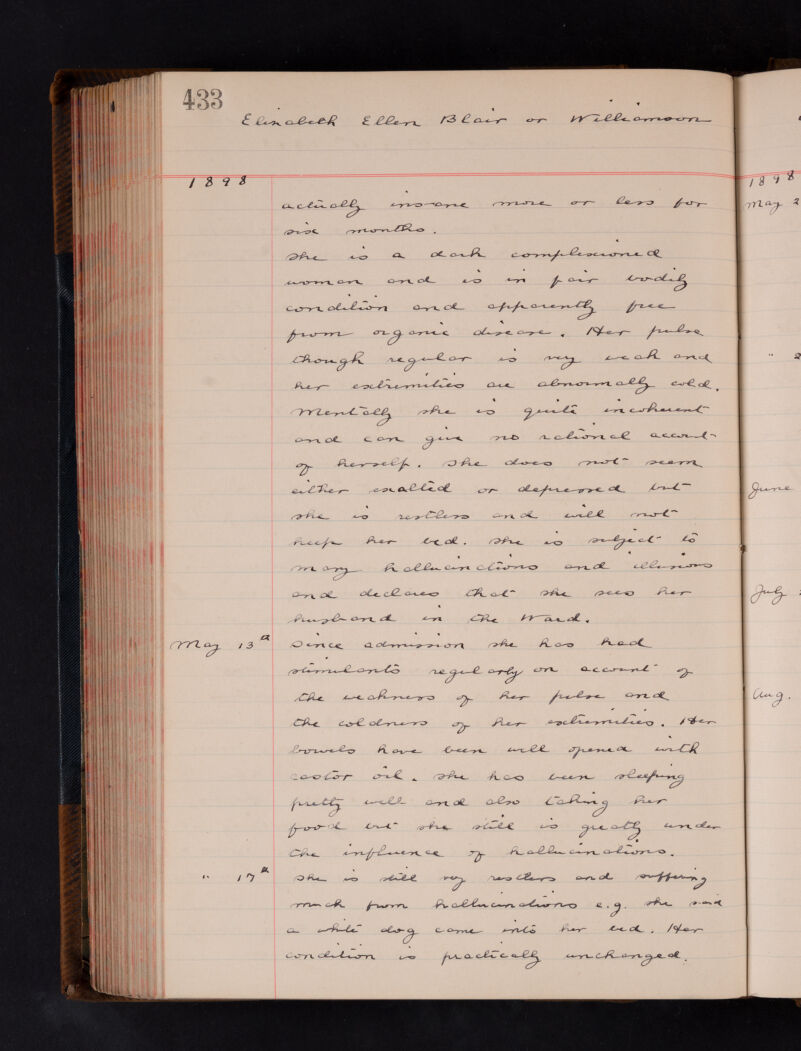 433
Elizabeth Ellen Blair or Williamson
1898
actually insane more or less for
six months.
She is a dark complexioned
woman and is in fair bodily
condition and apparently free
from organic disease. Her pulse
though regular is very weak and
her extremities are abnormally cold.
Mentally she is quite incoherent
and can give no rational account
of herself. She does not seem
either exalted or depressed but
she is restless and will not
keep her bed. She is subject to
many hallucinations and illusions
and declares that she sees her
husband in the Ward.
May 13th Since admission she has had
stimulants regularly on account of
the weakness of her pulse and
the coldness of her extremities. Her
bowels have been well opened with
castor oil. She has been sleeping
pretty well and also taking her
food but she still is greatly under
the influence of hallucinations.
" 17th She is still very restless and suffering
much from hallucinations e.g. she said
a white dog came into her bed. Her
condition is practically unchanged.
1898
May 2
"
June
July
Aug.